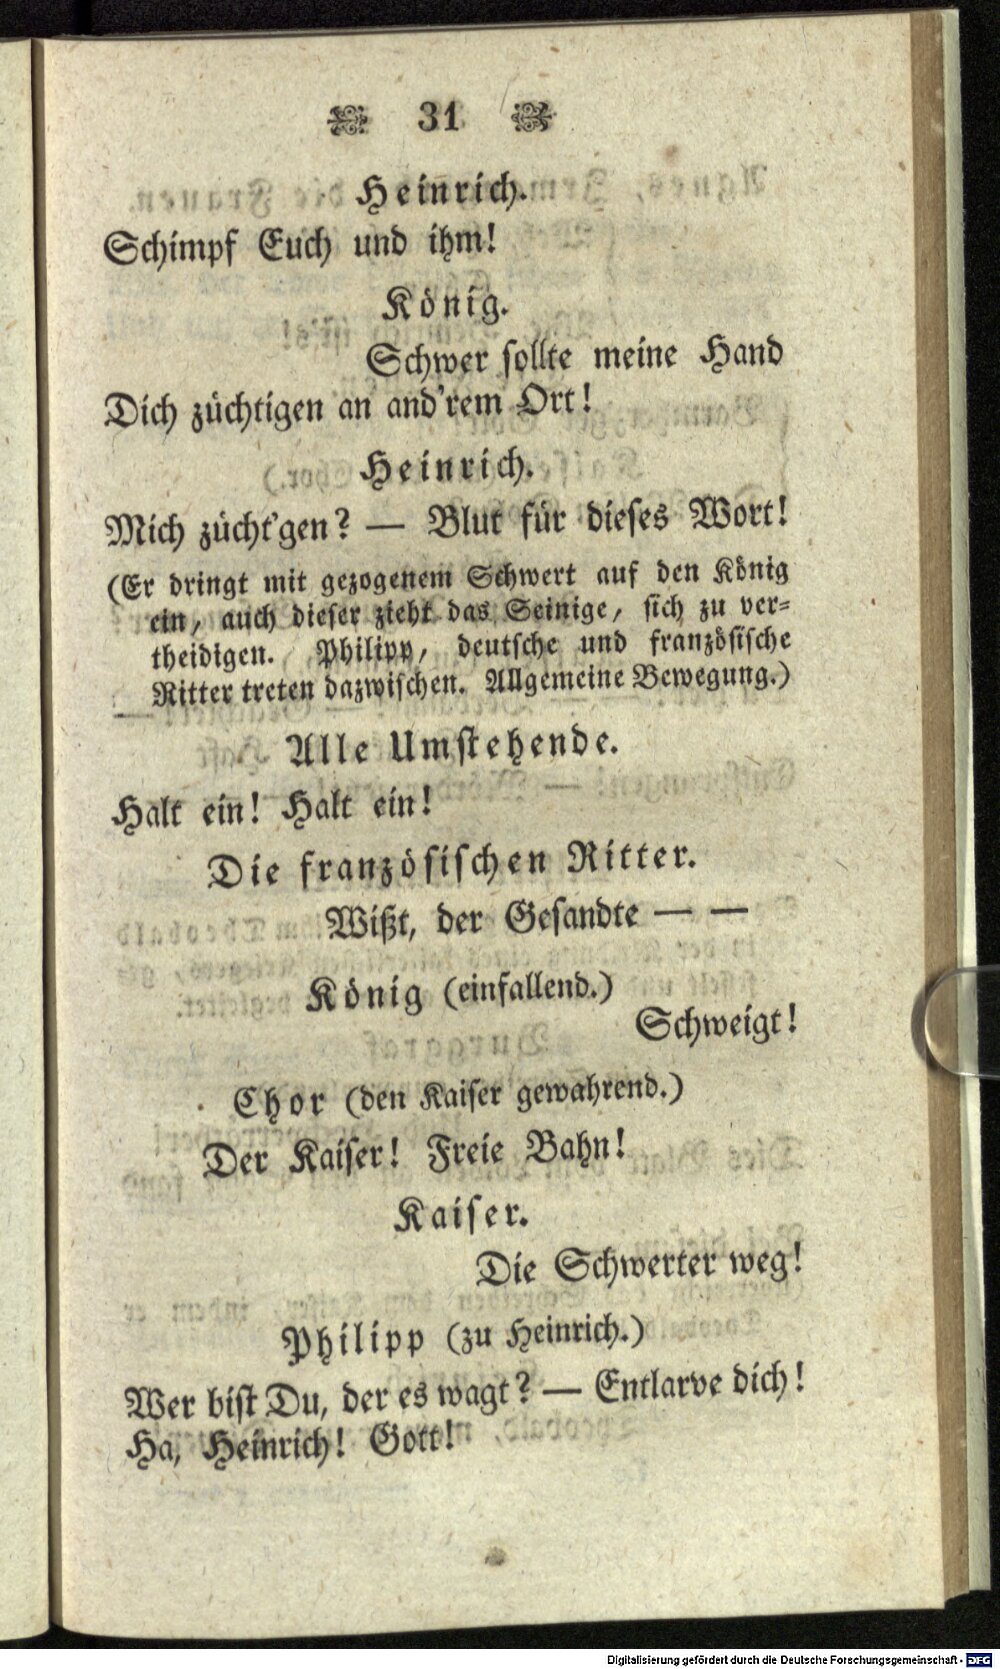 31
Heinrich.
Schimpf Euch und ihm!
König.
Schwer sollte meine Hand
Dich züchtigen an and'rem Ort!
Heinrich.
Mich zücht'gen? — Blut für dieses Wort!
(Er dringt mit gezogenem Schwert auf den König
ein, auch dieser zieht das Seinige, sich zu ver-
theidigen. Philipp, deutsche und französische
Ritter treten dazwischen. Allgemeine Bewegung.)
Alle Umstehende.
Halt ein! Halt ein!
Die französischen Ritter.
Wißt, der Gesandte — —
König (einfallend.)
Schweigt!
Chor (den Kaiser gewahrend.)
Der Kaiser! Freie Bahn!
Kaiser.
Die Schwerter weg!
Philipp (zu Heinrich.)
Wer bist Du, der es wagt? — Entlarve dich!
Ha, Heinrich! Gott!
Digitalisierung gefördert durch die Deutsche Forschungsgemeinschaft - DFG